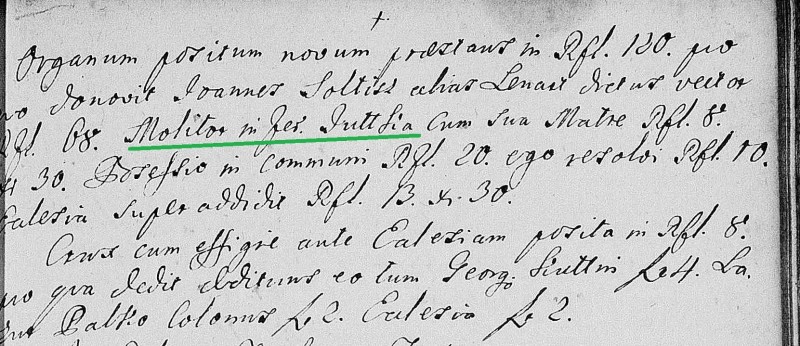 +
Organum positum novum præstans in Rfl. 120. pro
donovit Joannes Soltiss alias Lenart dictus vector
Rfl. 68. Molitor in Jes. Juttsia cum sua Matre Rfl. 8.
xr 30. Possessio in communi Rfl. 20. ego resolvi Rfl. 10.
Ealesia super addidit Rfl. 13. xr. 30.
Crux cum effigie ante Ealesiam posita in Rfl. 8.
pro qua dedit tum Georg. f 4. La.
Palko Colonus f 2. Ealesia f 2.